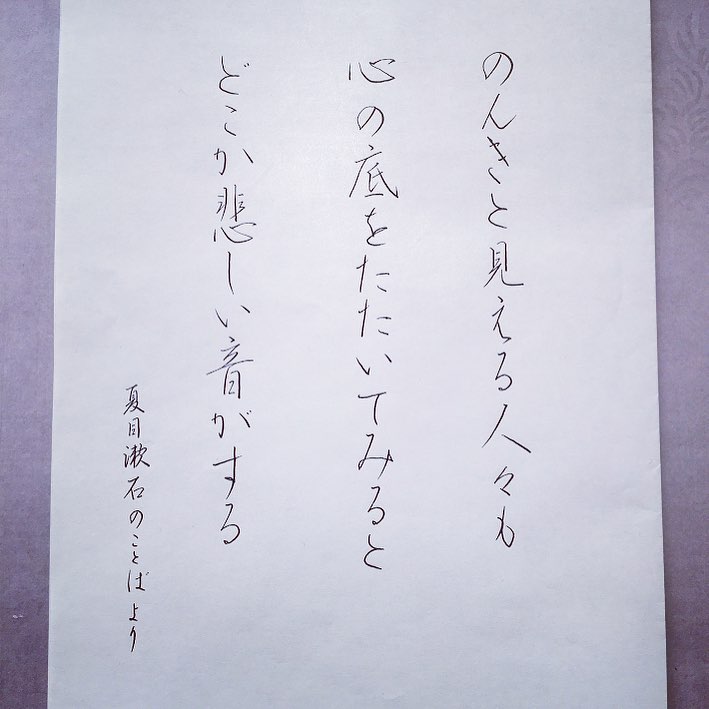 のんきと見える人々も
心の底をたたいてみると
どこか悲しい音がする
夏目漱石のことばより